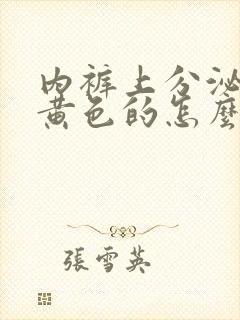 内裤上分泌
黄色的怎麼
張雪英